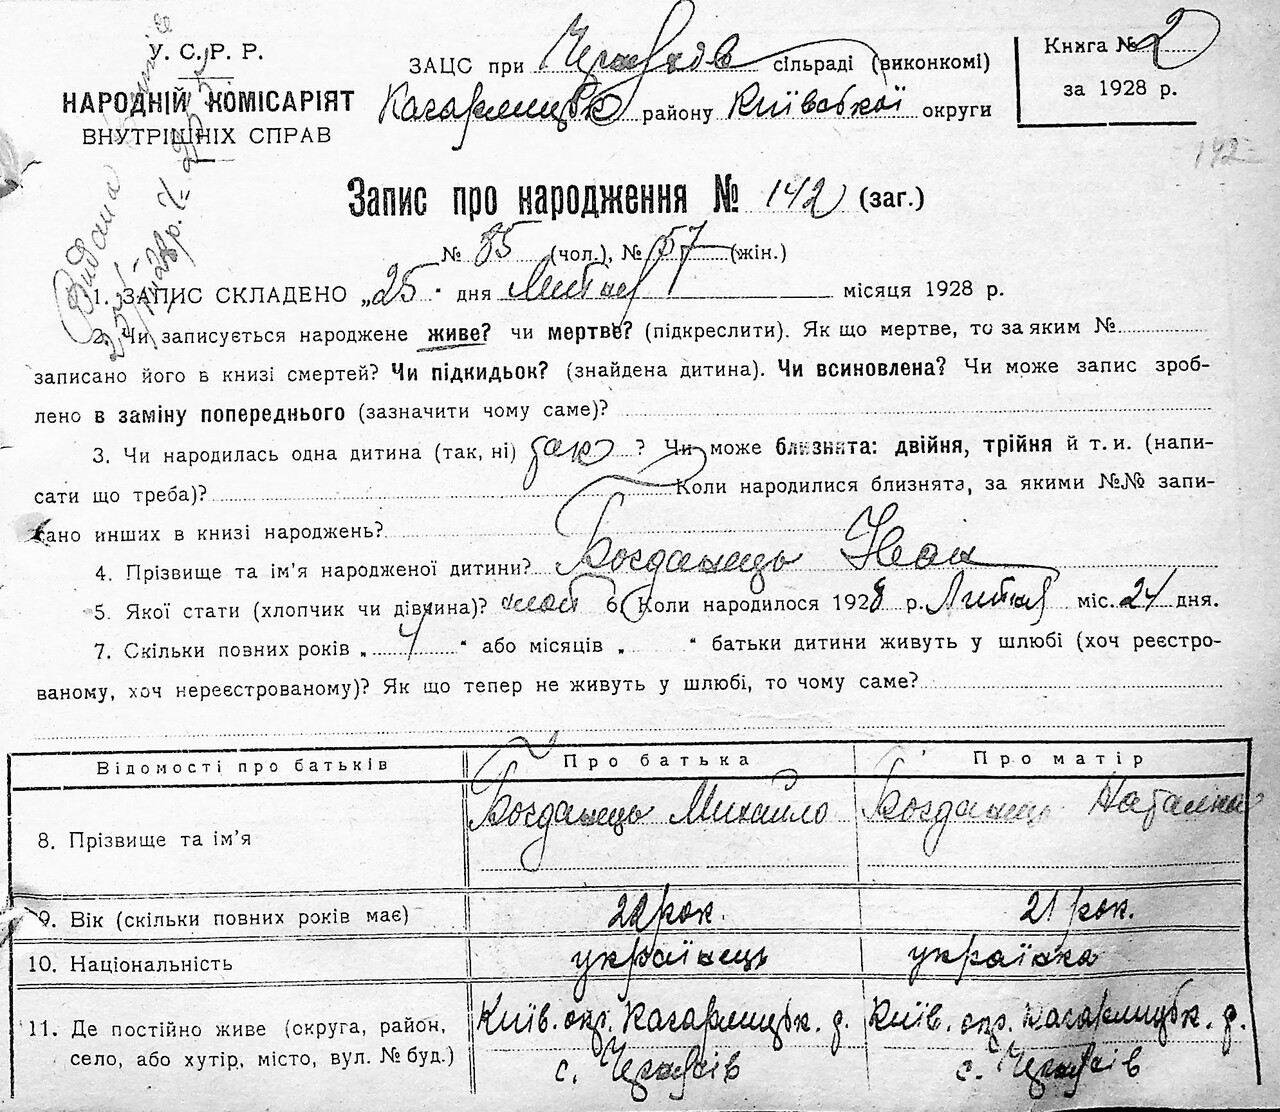 У. С. Р. Р.
НАРОДНІЙ КОМІСАРІЯТ
ВНУТРІШНІХ СПРАВ
ЗАЦС при сільраді (виконкомі)
Кагарлицьк району Київської округи
Книга № 2
за 1928 р.
142
Запис про народження № 142 (заг.)
№ 85 (чол.), № 57 (жін.)
1. ЗАПИС СКЛАДЕНО „25“ дня Лютня місяця 1928 р.
2. Чи записується народжене живе? чи мертве? (підкреслити). Як що мертве, то за яким №
записано його в книзі смертей? Чи підкидьок? (знайдена дитина). Чи всиновлена? Чи може запис зроб-
лено в заміну попереднього (зазначити чому саме)?
3. Чи народилась одна дитина (так, ні) так ? Чи може близнята: двійня, трійня й т. и. (напи-
сати що треба)? Коли народилися близнята, за якими №№ запи-
сано инших в книзі народжень?
4. Прізвище та ім'я народженої дитини? Богданець Іван
5. Якої стати (хлопчик чи дівчина)? 6. Коли народилося 1928 р. Лютня міс. 24 дня.
7. Скільки повних років „ “ або місяців „ “ батьки дитини живуть у шлюбі (хоч реєстро-
ваному, хоч нереєстрованому)? Як що тепер не живуть у шлюбі, то чому саме?
Відомості про батьків Про батька Про матір
8. Прізвище та ім'я Богданець Михайло Богданець
9. Вік (скільки повних років має) 22 рок. 21 рок.
10. Національність українець українка
11. Де постійно живе (округа, район, Київ. окр. Кагарлицьк. р. Київ. окр. Кагарлицьк. р.
село, або хутір, місто, вул. № буд.) с. с.